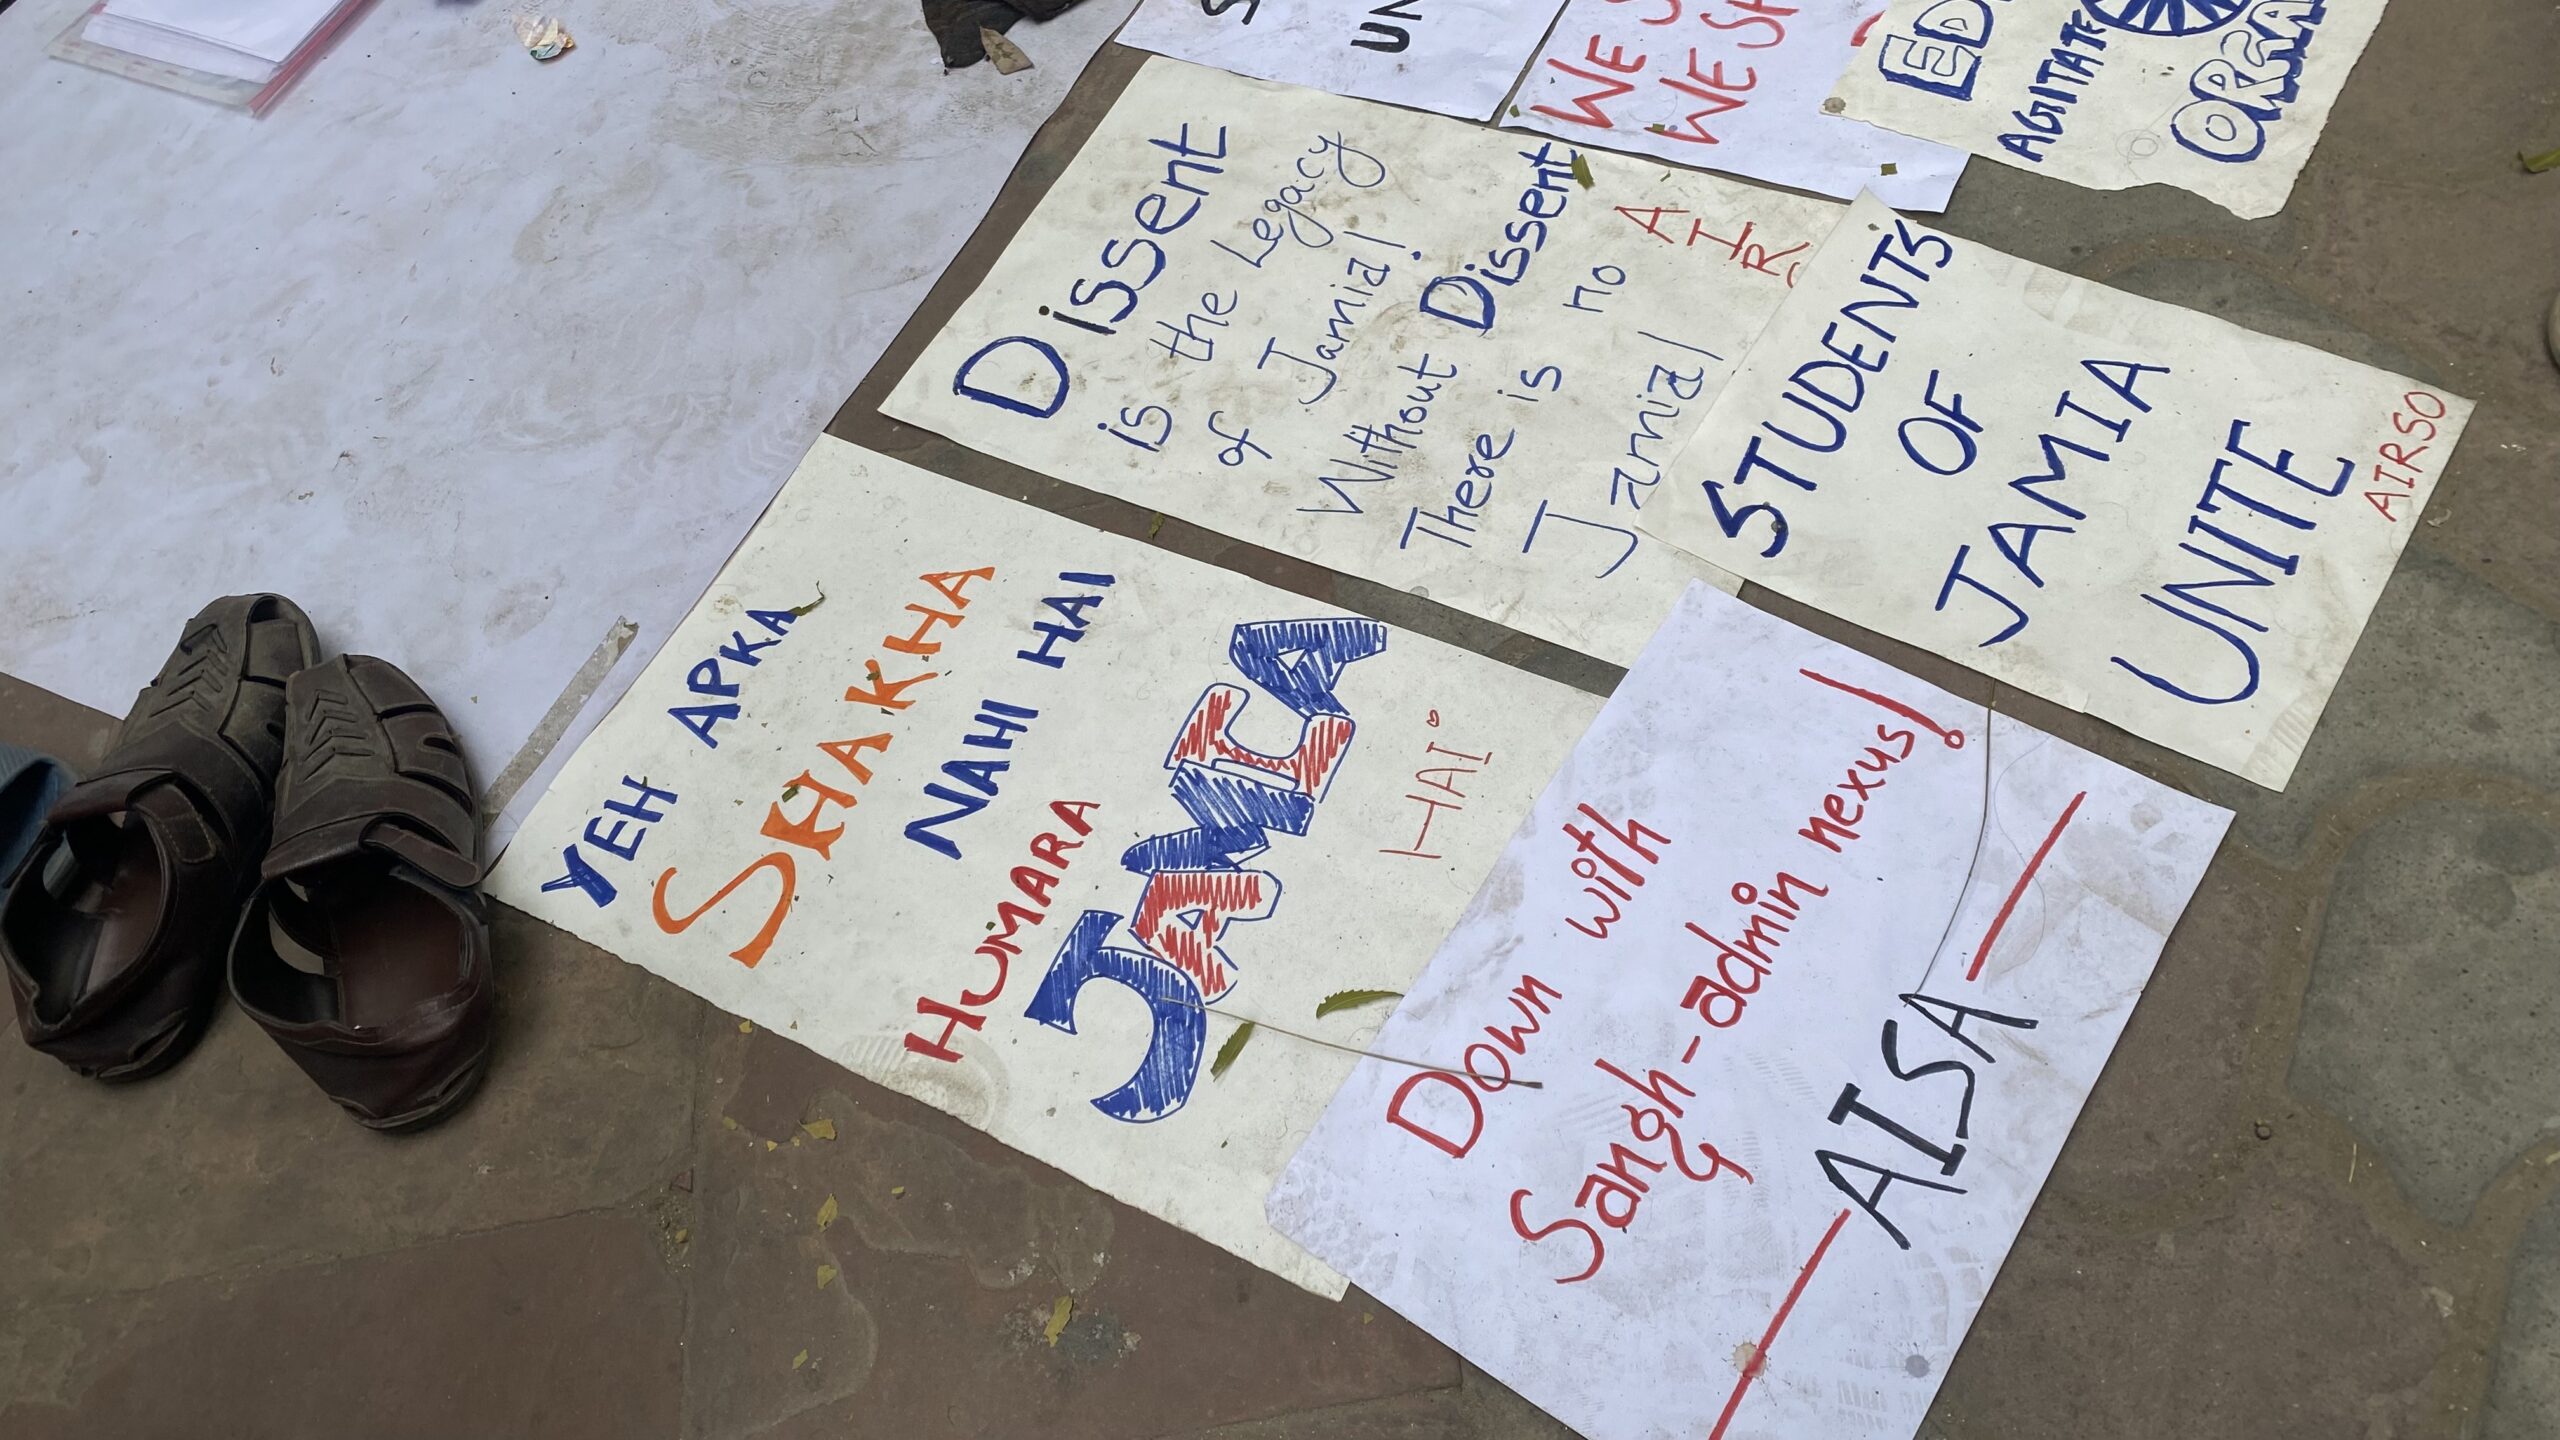 WE
WE
AGITATE
Dissent
is the Legacy
of Jamia!
Without Dissent
There is no
Jamia!
STUDENTS
OF
JAMIA
UNITE
AIRSO
YEH APKA
SHAKHA
NAHI HAI
HUMARA
JAMIA
HAI
Down with
Sangh-admin nexus!
— AISA —